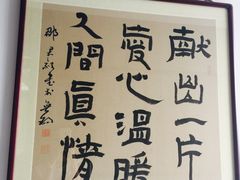 献出一片
愛心溫暖
人間眞情